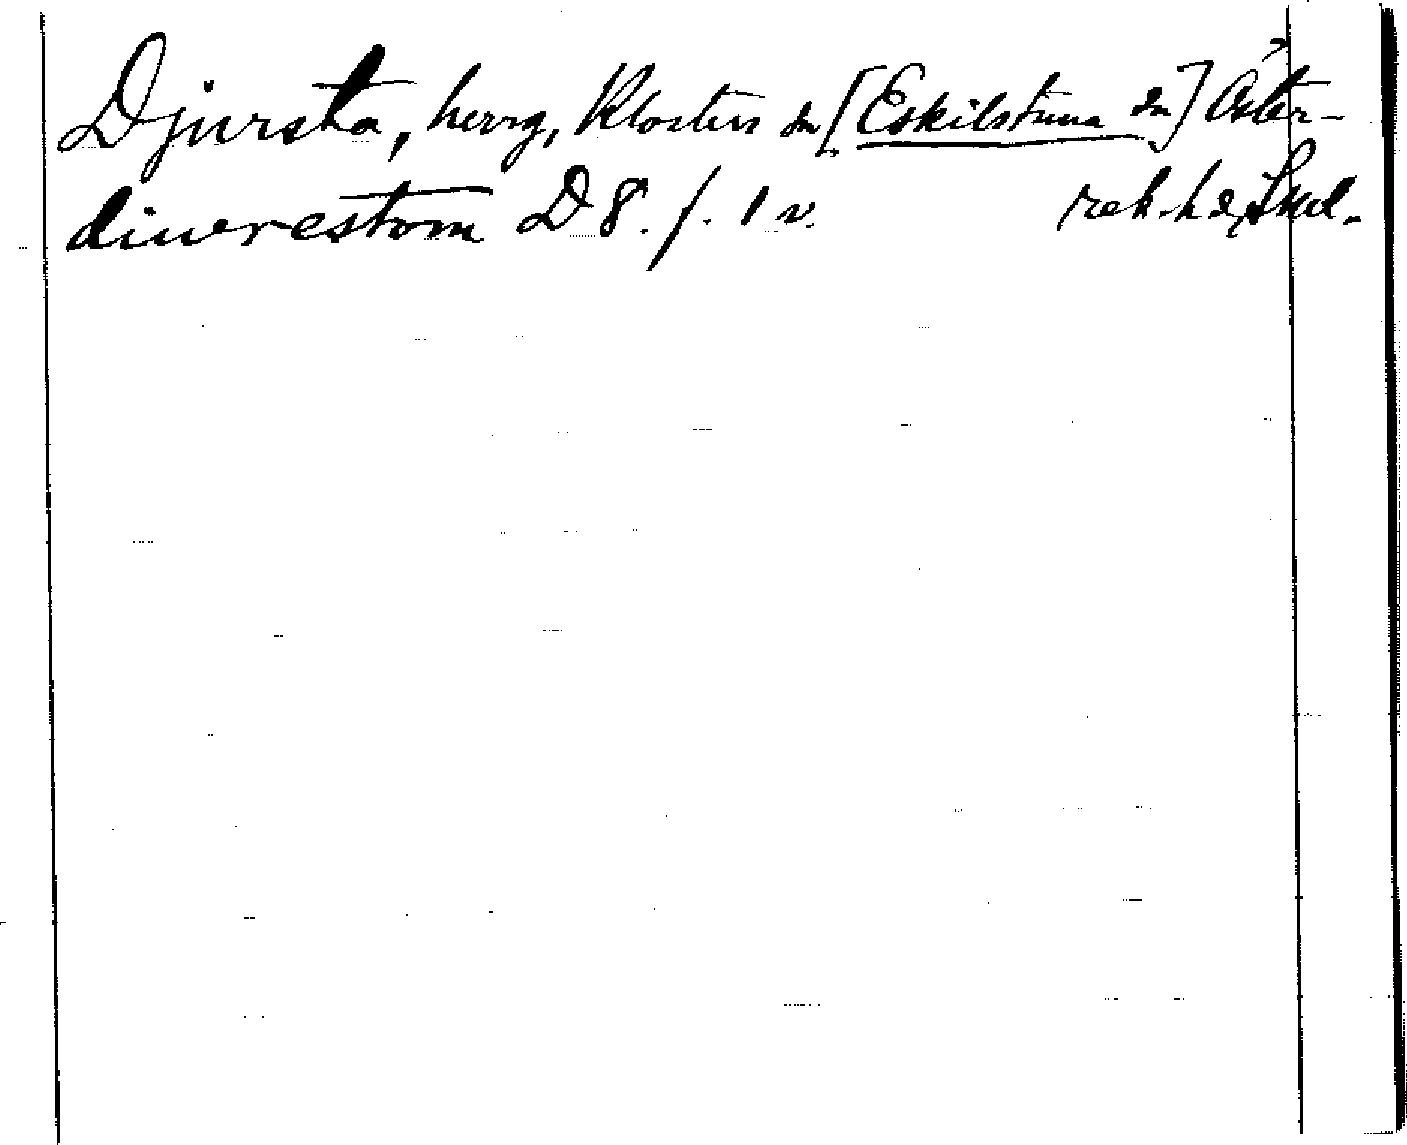 Djursta, herrg, Klosters sn [Eskilstuna sn] Öster-
diurestom D 8. f. 1 v. rek. hd, Sml.